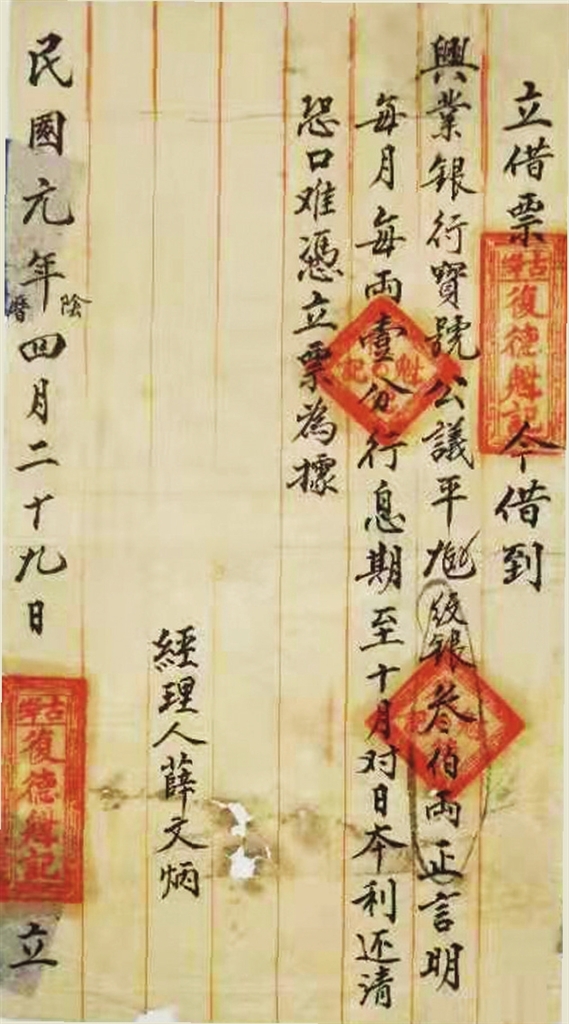 立借票 今借到
古絳
復德魁記
興業銀行寶號公議平 紋銀叁伯兩正言明
每月每兩壹分行息期至十月对日本利还清
魁記
恐口难憑立票為據
經理人薛文炳
民國元年陰曆四月二十九日 立
古絳
復德魁記